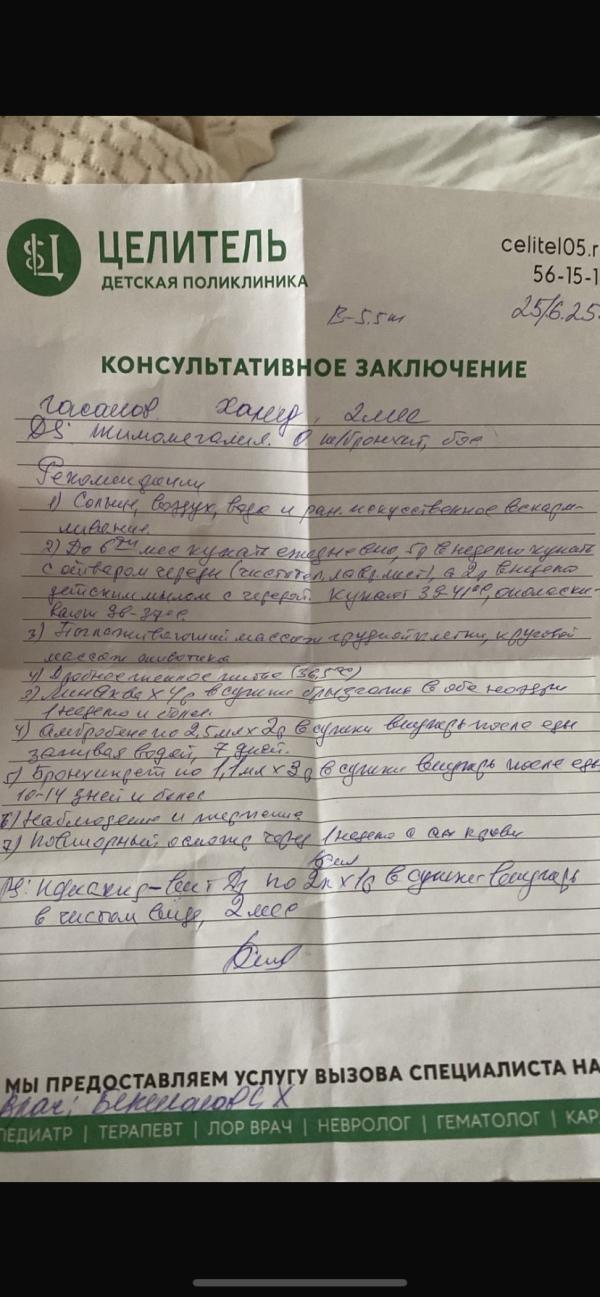 ЦЕЛИТЕЛЬ
ДЕТСКАЯ ПОЛИКЛИНИКА
celitel05.r
56-15-1
25/6.25
В-5.5кг
КОНСУЛЬТАТИВНОЕ ЗАКЛЮЧЕНИЕ
Гасанов 2 мес
DS: Тимомегалия. О бронхит,
Рекомендации
1) Солнце, воздух, вода и ран. искусственное вскарм-
ливание.
2) До 6 мес купать ежедневно, в неделю купать
с отваром череды (чистотел, лавр. лист), а 2р в неделю
детским мылом с чередой. Купают 38-41°С, ополаски-
вают 36-37°С
3) Поглаживающий массаж грудной клетки, круговой
массаж животика
4) Дробное теплое питье (36,5°С)
х 4р в сутки в обе ноздри
1 неделю и более.
4) Амбробене по 2,5мл х 2р в сутки внутрь после еды
запивая водой, 7 дней.
5) Бронхипрет по 1,1мл х 3р в сутки внутрь после еды
10-14 дней и более
6) Наблюдение и
7) Повторный осмотр через 1 неделю с ан крови
по 2к х 1р в сутки внутрь
в чистом виде, 2 мес
МЫ ПРЕДОСТАВЛЯЕМ УСЛУГУ ВЫЗОВА СПЕЦИАЛИСТА НА
Врач:
ПЕДИАТР | ТЕРАПЕВТ | ЛОР ВРАЧ | НЕВРОЛОГ | ГЕМАТОЛОГ | КАР